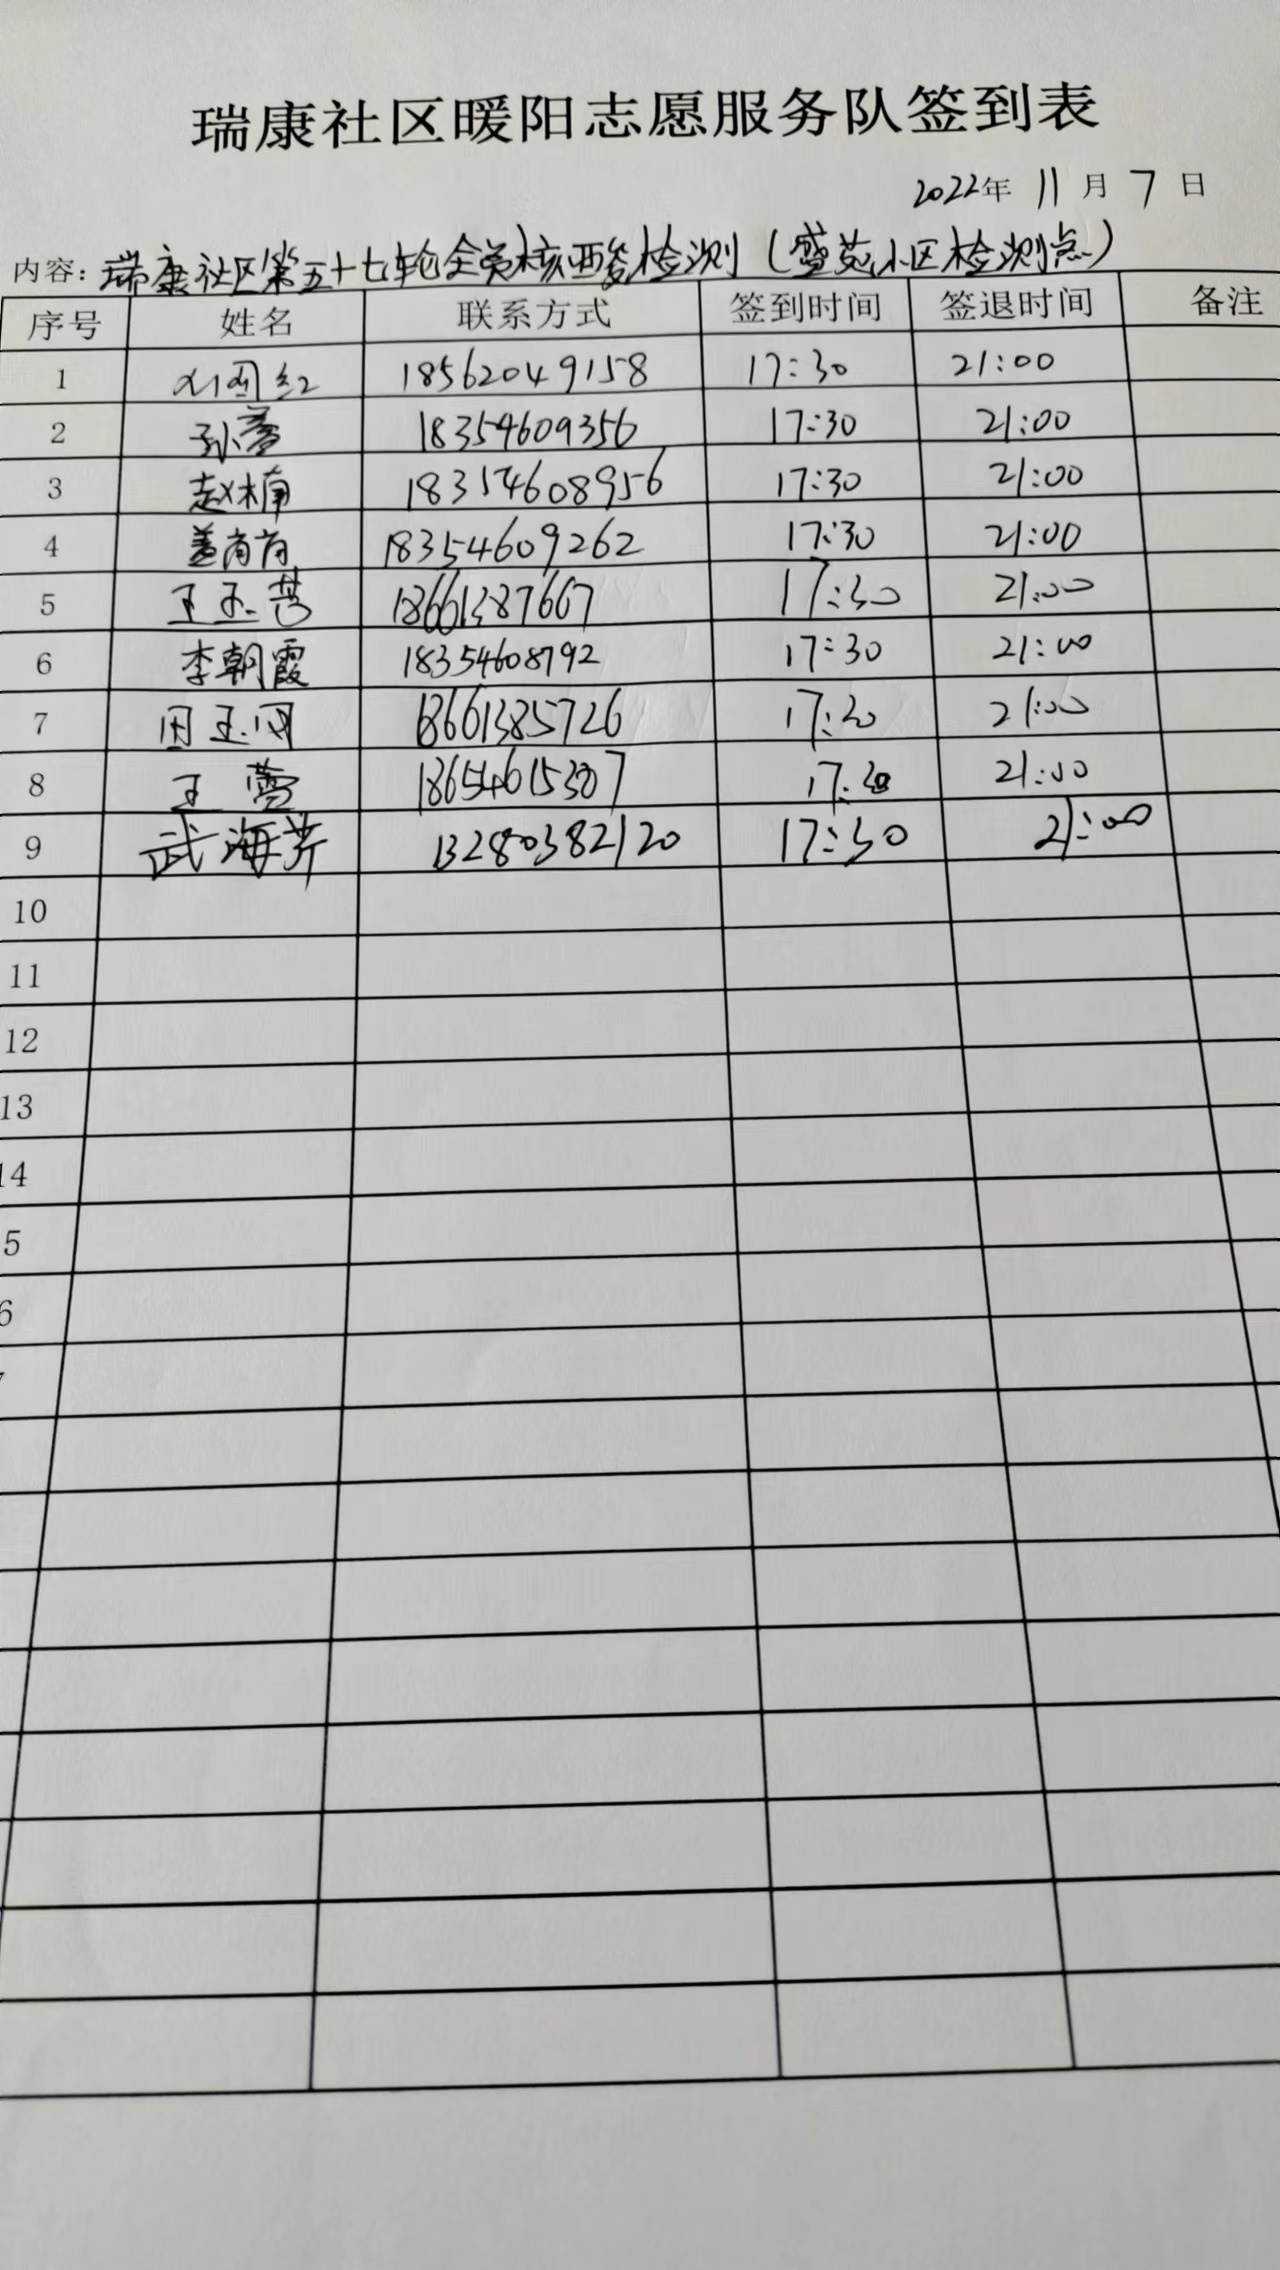 瑞康社区暖阳志愿服务队签到表
2022年 11 月 7 日
内容：瑞康社区第五十七轮全员核酸检测（盛苑小区检测点）
序号 姓名 联系方式 签到时间 签退时间 备注
1 18562049158 17:30 21:00
2 孙蕾 18354609356 17:30 21:00
3 赵林楠 18354608956 17:30 21:00
4 18354609262 17:30 21:00
5 王玉营 18661387667 17:30 21:00
6 李朝霞 18354608792 17:30 21:00
7 18661385726 17:30 21:00
8 王 18654615307 17:30 21:00
9 武海芹 13280382120 17:30 21:00
10
11
12
13
14
5
6